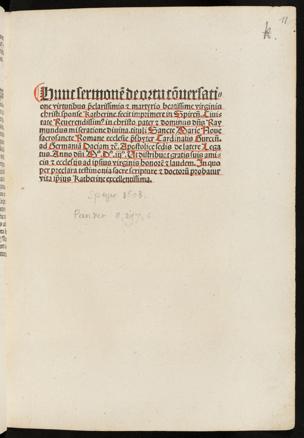 11
k.
Hunc sermonē de ortu cōversati-
one virtutibus p̄clarissimis ⁊ martyrio beatissime virginis
christi sponse Katherine. fecit imprimere in Spirēn̄. Civi
tate Reverendissimꝰ in christo pater ⁊ dominus dn̄s Ray
mundus miseratione divina. tituli Sancte Marie Nove
sacrosancte Romane ecclesie p̄sbyter Cardinalis
ad Germaniā Daciam ⁊c̄. Apostolice sedis de latere Lega
tus. Anno dn̄i M°. D°. iij°. Ut distribuat gratis suis ami-
cis ⁊ ecclesijs ad ipsius virginis honorē ⁊ laudem. In quo
per preclara testimonia sacre scripture ⁊ doctorū probatur
vita ip̄sius Katherine excellentissima.
Speyer 1503.
Panzer